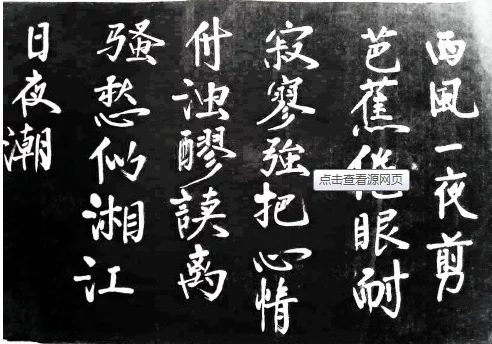 西風一夜剪
芭蕉眼耐
寂寥強把心情
付浊醪讀离
騷愁似湘江
日夜潮
点击查看源网页